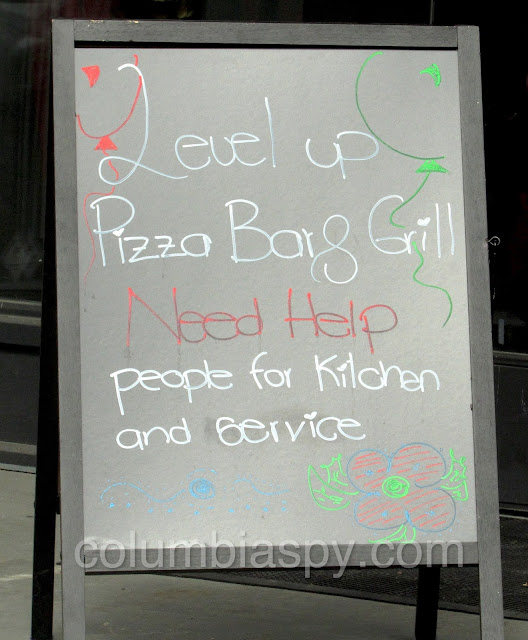 Level up
Pizza Bar & Grill
Need Help
people for Kilchen
and Service
columbiaspy.com